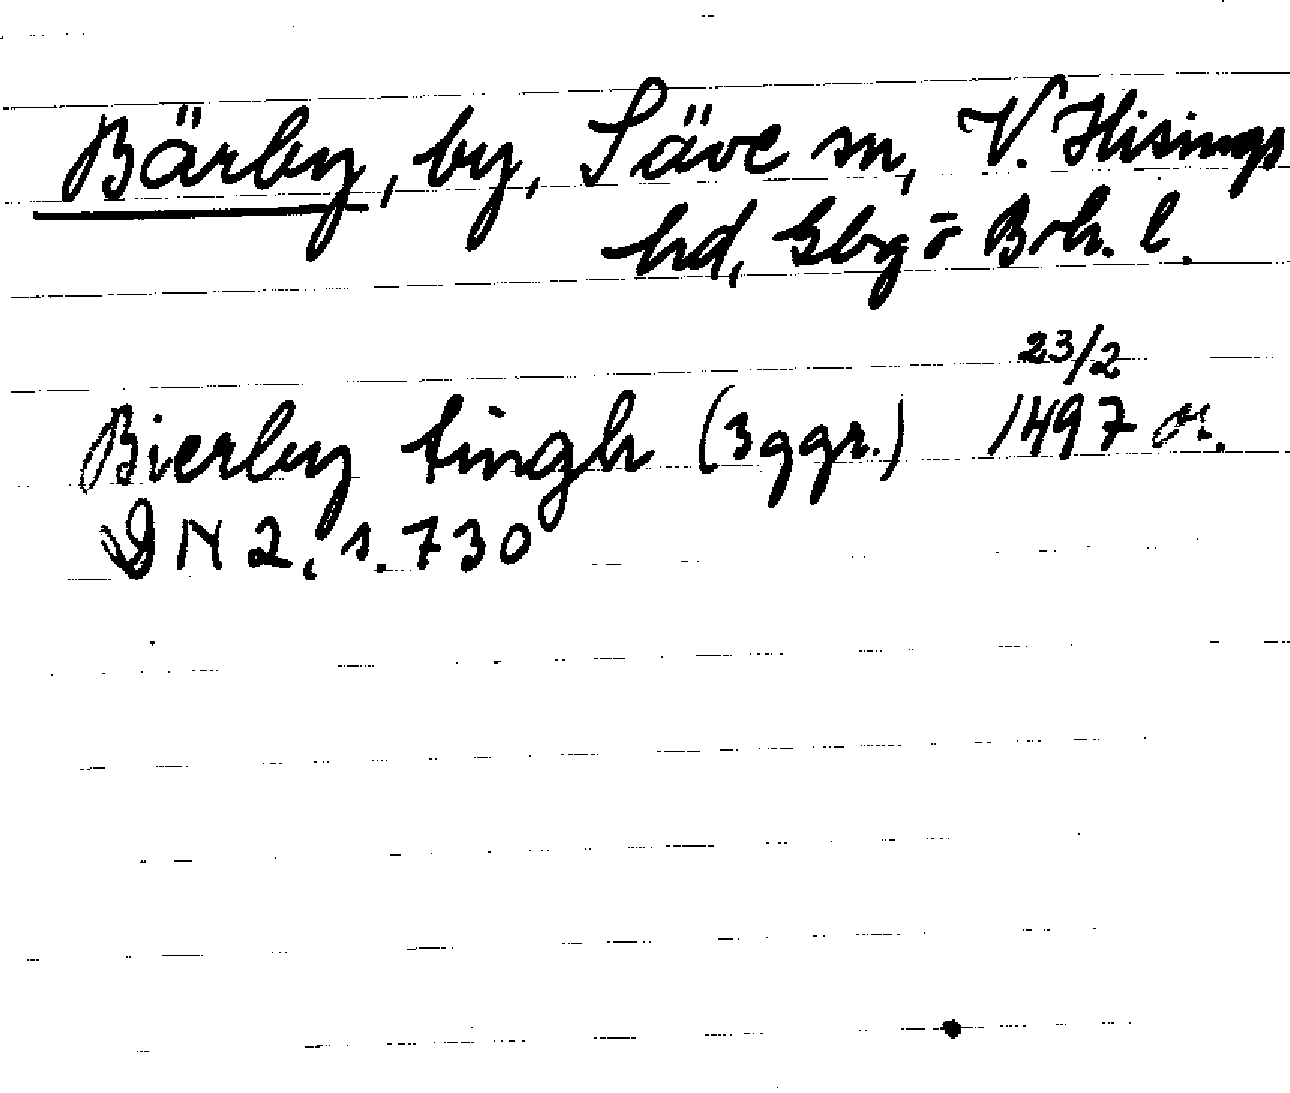 Bärby, by, Säve sn, V. Hisings
hd, Gbg o Boh. l.
23/2
Bierby tingh (3 ggr.) 1497 or.
DN 2, s. 730